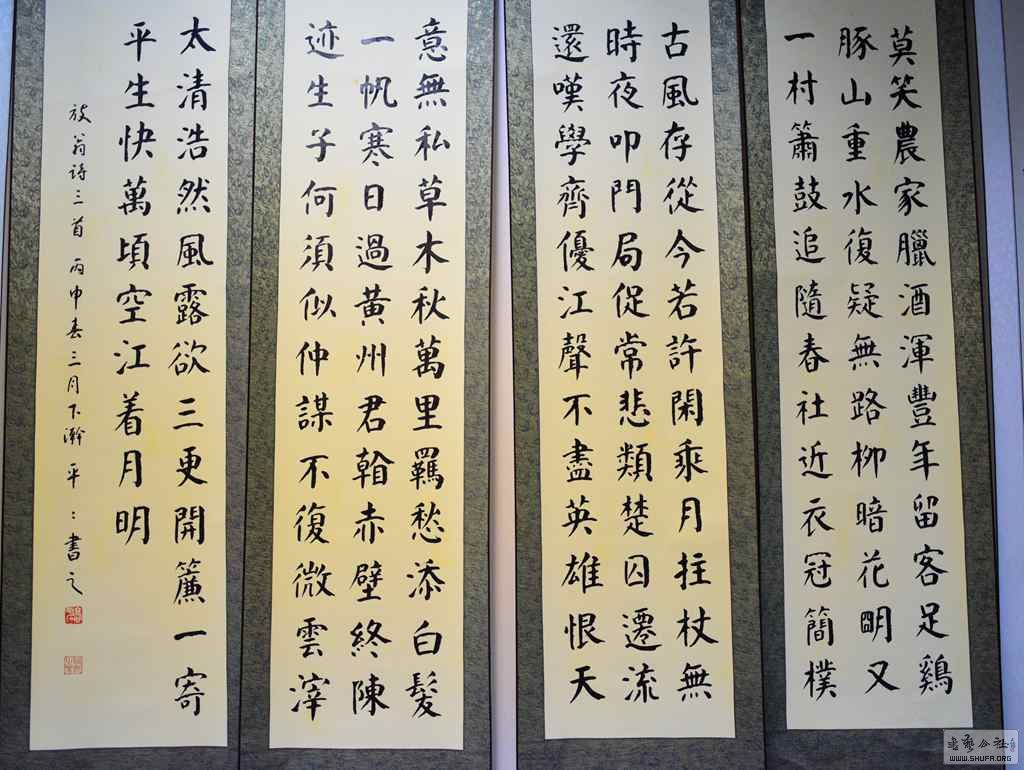 莫笑農家臘酒渾豐年留客足鷄
豚山重水復疑無路柳暗花明又
一村簫鼓追隨春社近衣冠簡樸
古風存從今若許閑乘月拄杖無
時夜叩門局促常悲類楚囚遷流
還嘆學齊優江聲不盡英雄恨天
意無私草木秋萬里羈愁添白髮
一帆寒日過黃州君看赤壁終陳
迹生子何須似仲謀不復微雲滓
太清浩然風露欲三更開簾一寄
平生快萬頃空江着月明
放翁詩三首 丙申春三月下澣 平：書之
WWW.SHUFA.ORG